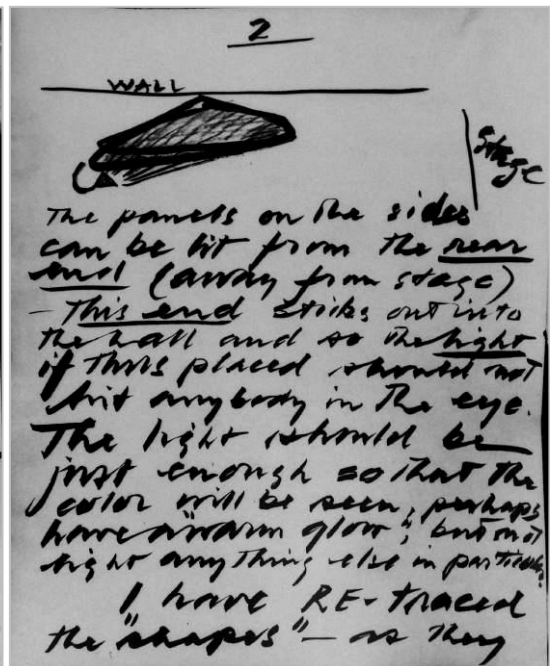 2
WALL
Stage
The panels on the sides
can be lit from the rear
end (away from stage)
- This end sticks out into
the hall and so the light
if thus placed should not
hit anybody in the eye.
The light should be
just enough so that the
color will be seen, perhaps
have a "warm glow", but not
light anything else in particular.
I have RE-traced
the "shapes" - as they